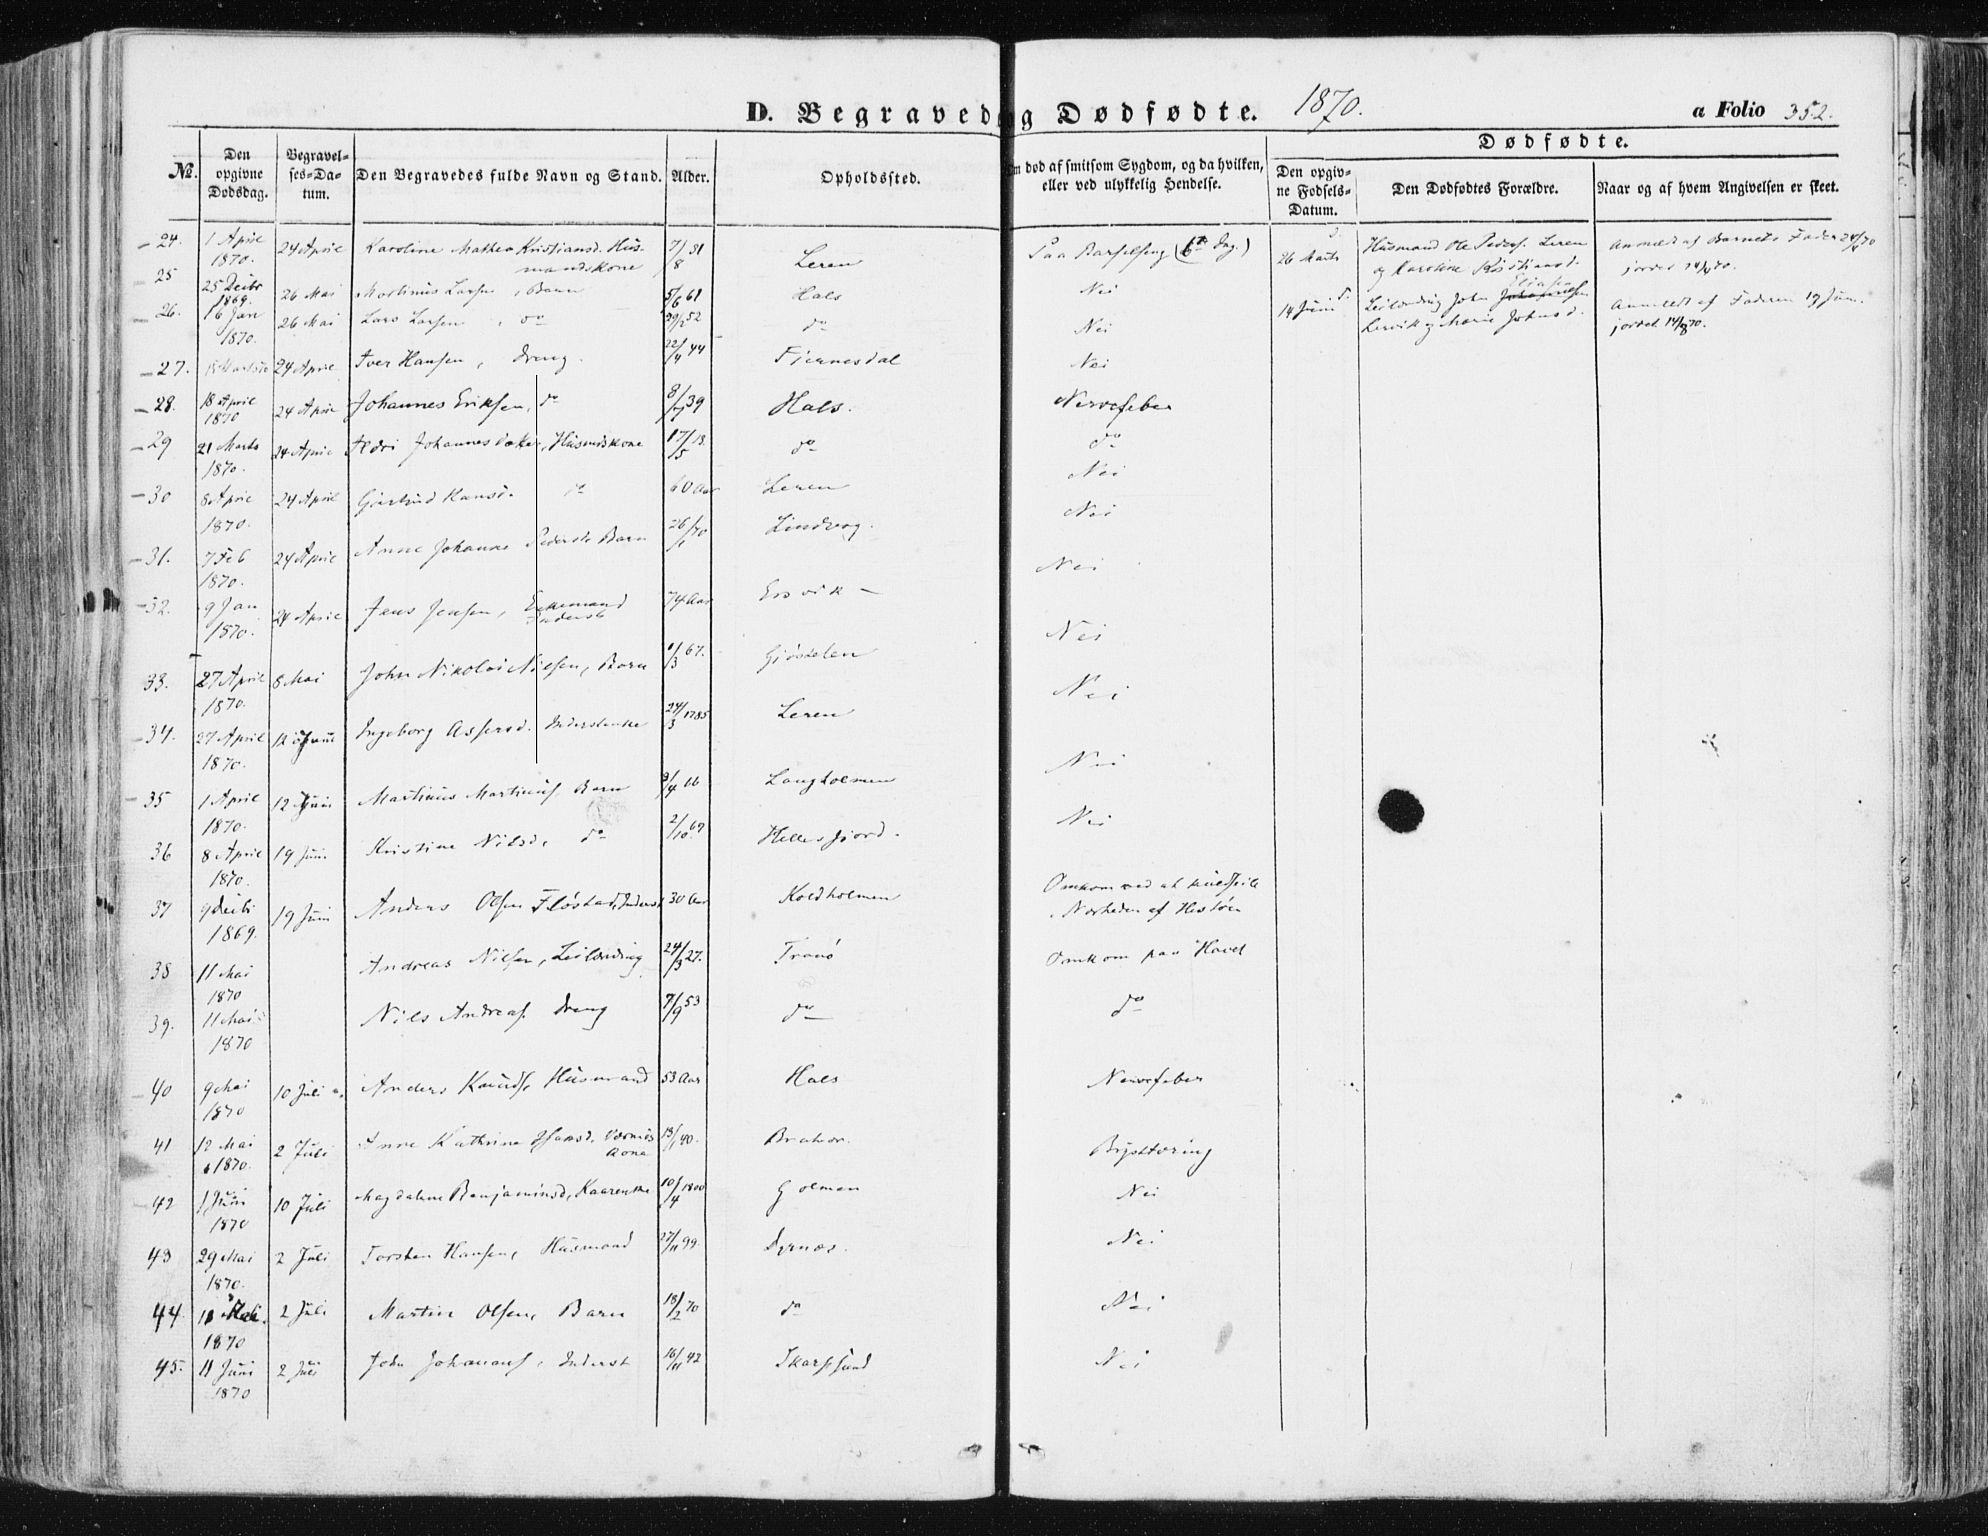 D. Begravede og Dødfødte. 1870. a Folio 352.
№. Den opgivne Dødsdag. Begravelses=Datum. Den Begravedes fulde Navn og Stand. Alder. Opholdssted. Om død af smitsom Sygdom, og da hvilken, eller ved ulykkelig Hendelse.
Dødfødte.
Den opgivne Fodsels=Datum. Den Dødfødtes Forældre. Naar og af hvem Angivelsen er skeet.
24. 1 April 1870. 24 April Karoline Mathea Kristiansd. Husmandskone 7/8 31 Leren Paa Barselseng (6te Dag.)
25 25 Decbr 1869. 26 Mai Martinus Larsen, Barn 5/6 61 Hals Nei
26. 16 Jan 1870. 26 Mai Lars Larsen, do 29/2 52 do Nei
27. 24 April Iver Hansen, Dreng. 22/4 44 Fjernesdal Nei
28. 18 April 1870 24 April Johannes Eriksen, do 8/ 39 Hals. Nervefeber
29 21 Marts 1870. 24 April Johannesdatter, Husmdskone 17/5 13 do do
30 8 April 1870. 24 April Gjertrud Hansd. do 60 Aar Leren Nei
31. 7 Feb 1870. 24 April Anne Johanna Pedersd. Barn 26/1 70 Lindvaag. Nei
32. 9 Jan 1870. 24 April Jens Jensen, Enkemand Inderst 74 Aar Ersvik Nei
33. 27 April 1870. 8 Mai John Nikolai Nilsen, Barn /3 67. Gjøstelen Nei
34. 27 April 1870. 12 Juni Ingeborg Assersd. Inderstenke 24/3 1785 Leren Nei
35 1 April 1870. 12 Juni Martinus Martinus. Barn 9/4 66 Langholmen Nei
36 8 April 1870. 19 Juni Kristine Nilsd. do 2/10 69 Hellesfjord. Nei
37 9 Decbr 1869. 19 Juni Anders Olsen Fløstad, Inderst 30 Aar Koldholmen Omkom ved at kuldseile i Nærheden af Hestøen
38 11 Mai 1870 Andreas Nilsen, Leilænding 24/3 27. Tronø Omkom paa Havet
39. 11 Mai 1870 Nils Andreas. Dreng 7/9 53 do do
40 9 Mai 1870 10 Juli Anders Knuds. Husmand 53 Aar Hals Nervefeber
41 12 Mai 1870. 2 Juli Anne Kathrina Hansd. kone 13/1 40. Brysttæring
42 1 Juni 1870 10 Juli Magdalene Benjaminsd, Kaarenke 10/4 1800 Golmen Nei
43 29 Mai 1870. 2 Juli Torsten Hansen, Husmand 27/11 99. Dyrnæs. Nei
44. 18 1870 2 Juli Martin Olsen, Barn 18/2 70 do Nei
45. 11 Juni 1870 2 Juli John Johannes, Inderst 16/11 42 Skarpsund Nei
26 Marts Husmand Ole Peders. Leren og Karoline Kristiansd. Anmeldt af Barnets Fader 24/4 70 jordet 24/4 70.
14 Juni Leilænding John Johannesen Elias. Lervik og Marie Johnsd. Anmeldt af Faderen 19 Juni. jordet 70.